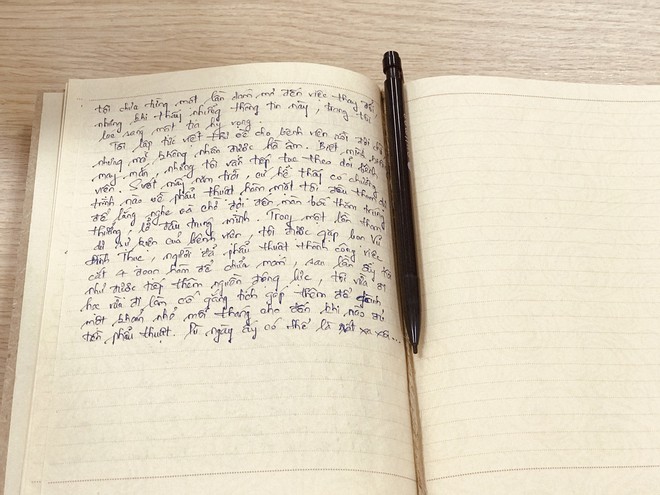 tôi chưa từng một lần dám mơ đến việc thay đổi
nhưng khi thấy những thông tin này, trong tôi
loé sáng một tia hy vọng.
Tôi lập tức viết thư để cho bệnh viện
nhưng mà không nhận được hồi âm. Biết mình không
may mắn, nhưng tôi vẫn tiếp tục theo dõi bệnh
viện. Suốt mấy năm trời, cứ hễ thấy có chương
trình nào về phẫu thuật hàm mặt tôi đều tham dự
để lắng nghe và chờ đợi đến màn bốc thăm trúng
thưởng, lỡ đâu trúng mình. Trong một lần tham
dự sự kiện của bệnh viện, tôi được gặp bạn Vũ
Đình Thực, người đã phẫu thuật thành công việc
cắt 4 đoạn hàm để chữa móm, sau lần ấy tôi
như được tiếp thêm nguồn động lực, tôi vừa đi
học vừa đi làm cố gắng tích góp thêm để dành
một khoản nhỏ mỗi tháng cho đến khi nào đủ
tiền phẫu thuật. Dù ngày ấy có thể là rất xa xôi...